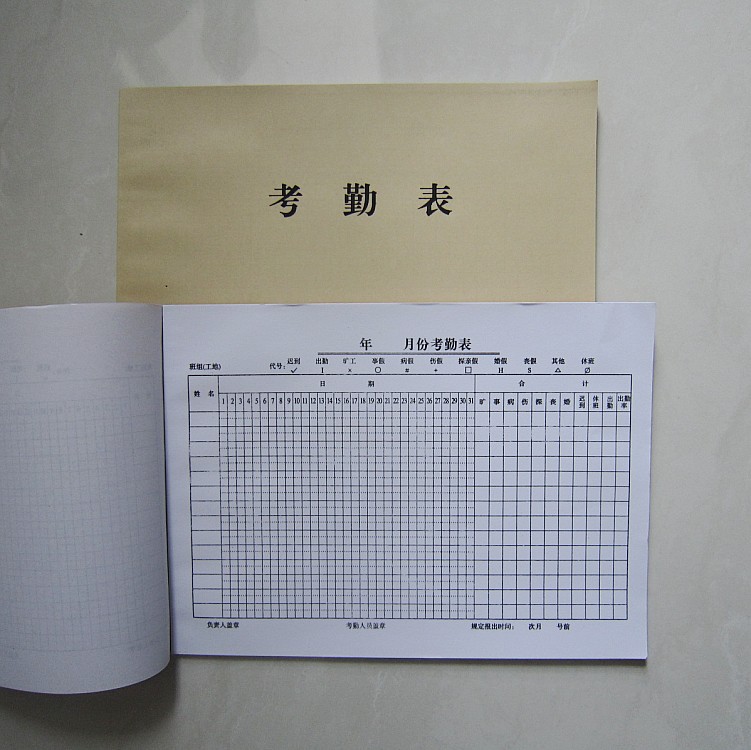 考 勤 表
年 月份考勤表
班组(工地) 代号: 迟到 出勤 旷工 事假 病假 伤假 探亲假 婚假 丧假 其他 休班
✓ I × ○ # + □ H S △ ∅
姓 名 日 期 合 计
1 2 3 4 5 6 7 8 9 10 11 12 13 14 15 16 17 18 19 20 21 22 23 24 25 26 27 28 29 30 31 旷 事 病 伤 探 丧 婚 迟到 休班 出勤 出勤率
负责人盖章 考勤人员盖章 规定报出时间: 次月 号前